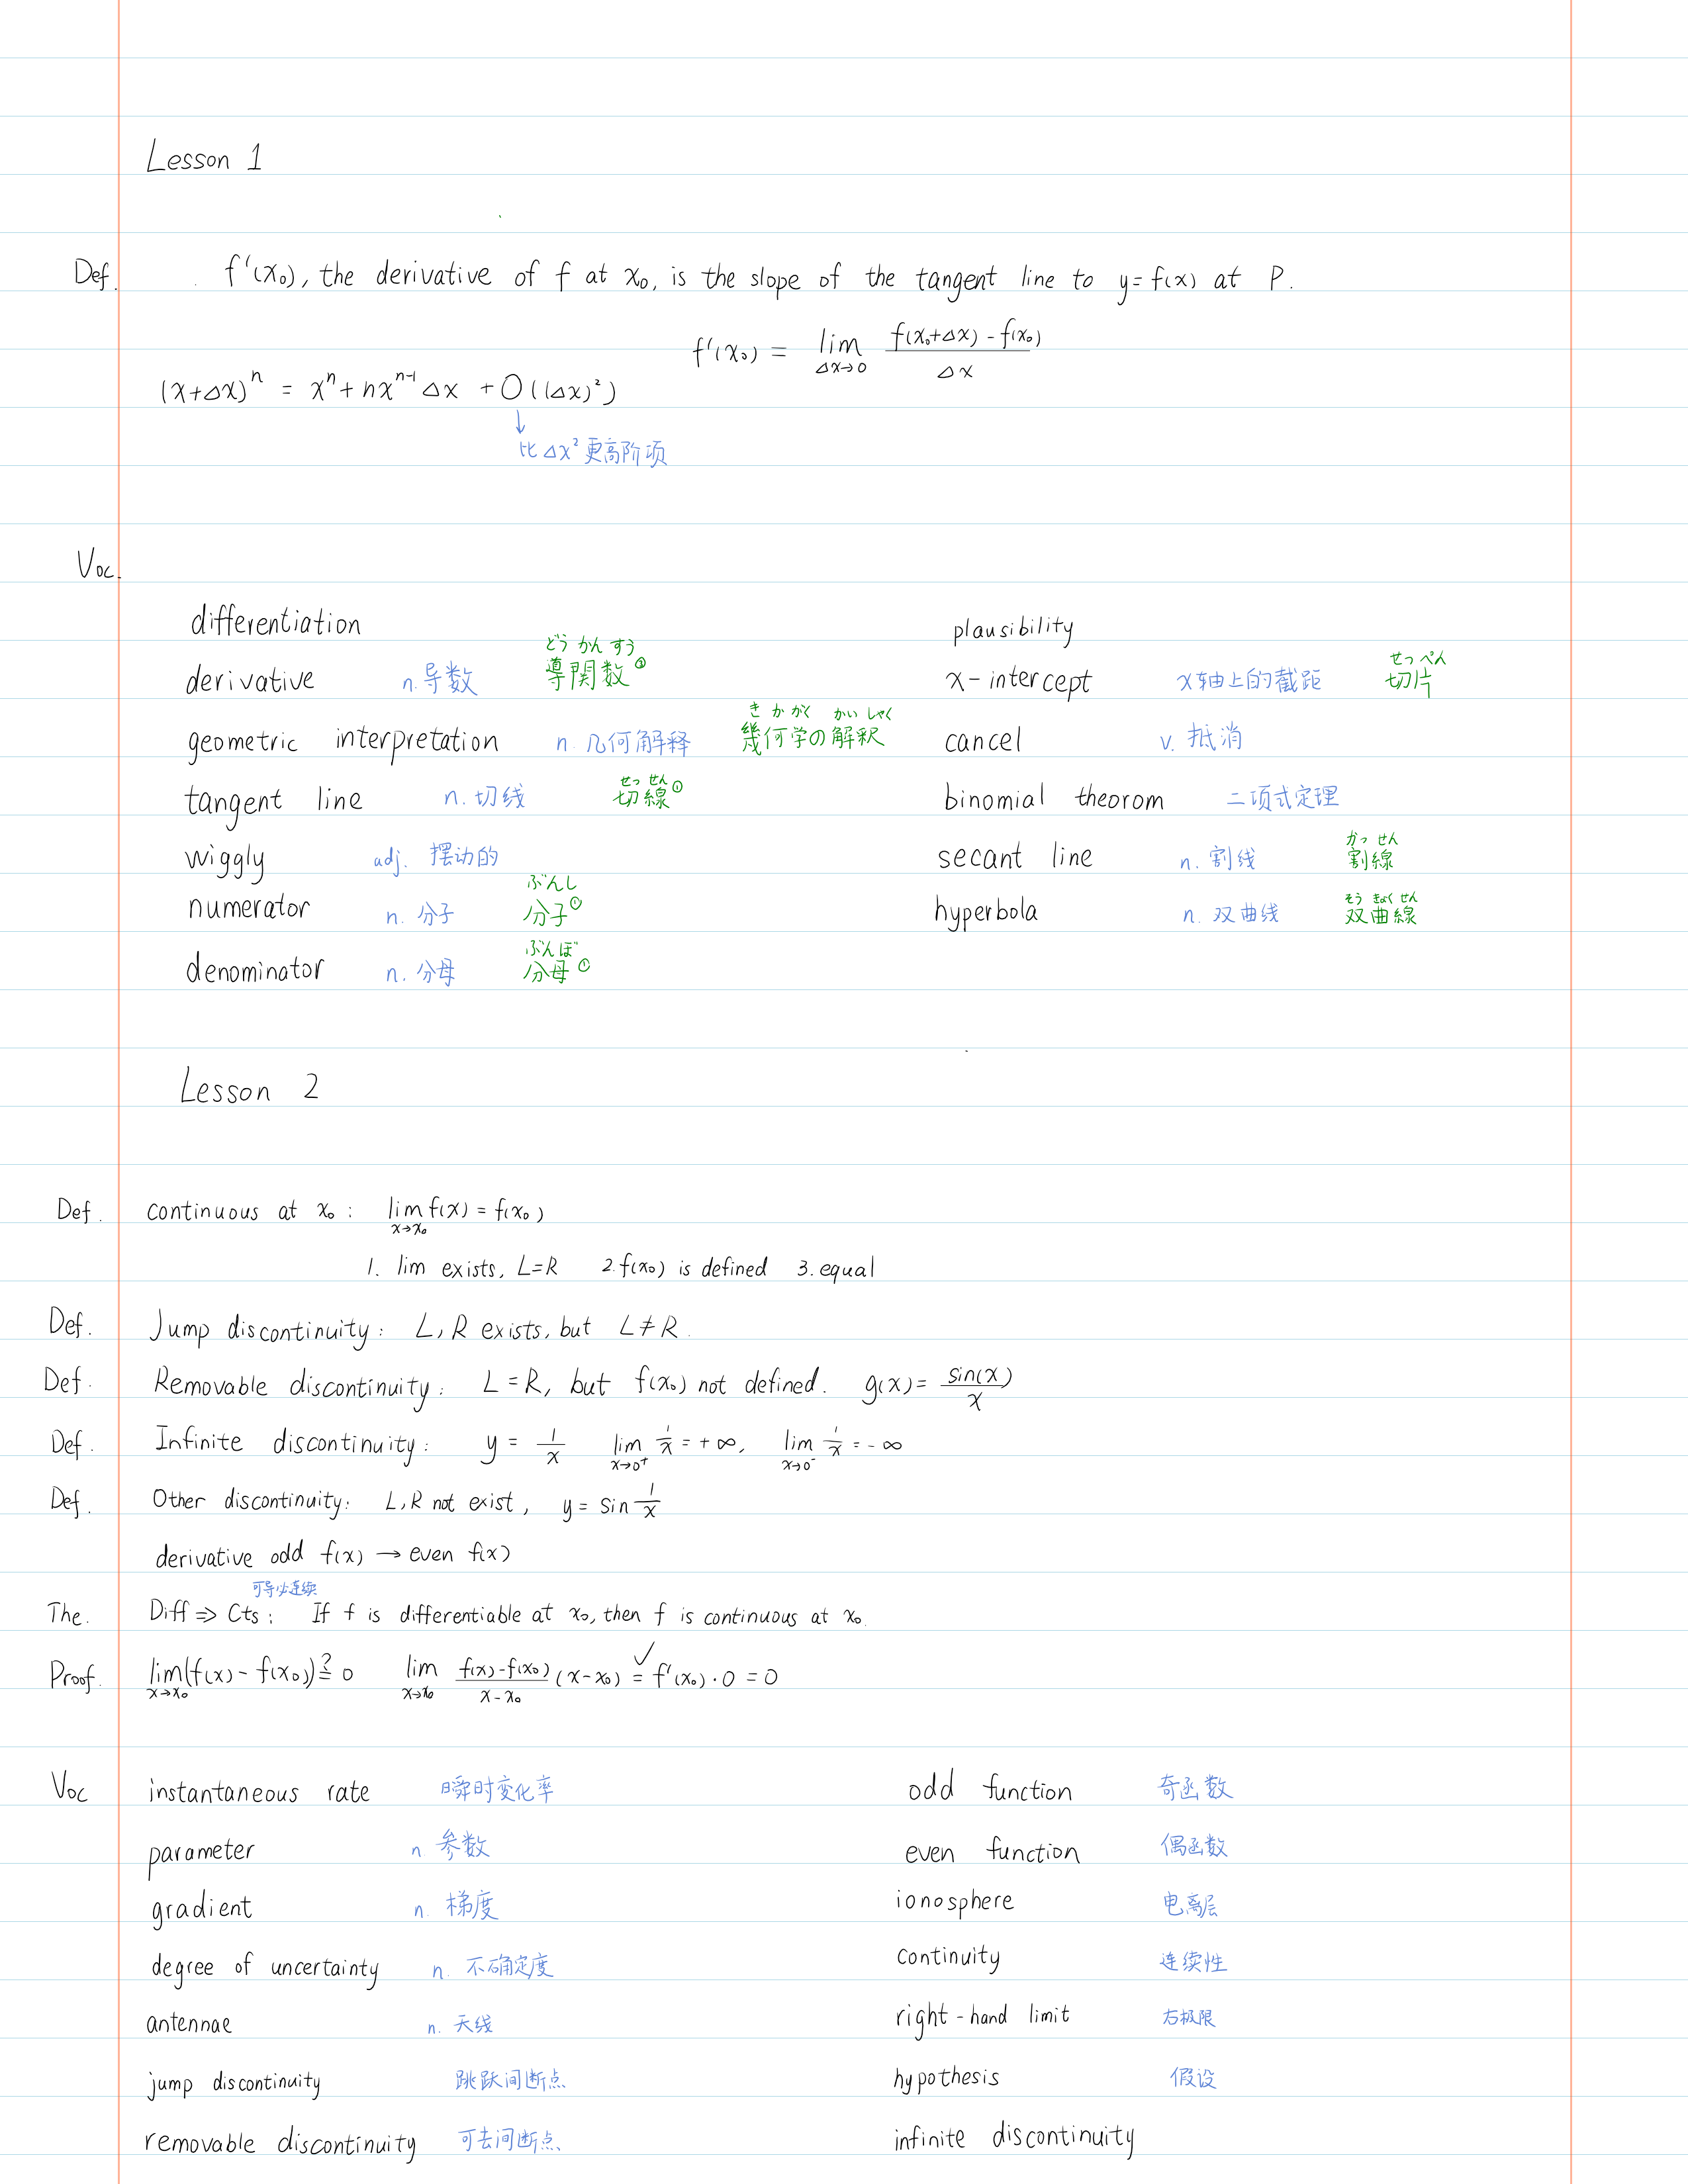 Lesson 1
Def. f'(x₀), the derivative of f at x₀, is the slope of the tangent line to y=f(x) at P.
f'(x₀) = lim Δx→0 (f(x₀+Δx) - f(x₀)) / Δx
(x+Δx)ⁿ = xⁿ + nxⁿ⁻¹ Δx + O((Δx)²)
↓
比 Δx² 更高阶项
Voc.
differentiation
derivative n. 导数 導関数② どうかんすう
geometric interpretation n. 几何解释 幾何学の解釈 きかがく かいしゃく
tangent line n. 切线 切線① せっせん
wiggly adj. 摆动的
numerator n. 分子 分子① ぶんし
denominator n. 分母 分母① ぶんぼ
plausibility
x-intercept x轴上的截距 切片 せっぺん
cancel v. 抵消
binomial theorom 二项式定理
secant line n. 割线 割線 かっせん
hyperbola n. 双曲线 双曲線 そうきょくせん
Lesson 2
Def. continuous at x₀: lim x→x₀ f(x) = f(x₀)
1. lim exists, L=R 2. f(x₀) is defined 3. equal
Def. Jump discontinuity: L, R exists, but L≠R.
Def. Removable discontinuity: L=R, but f(x₀) not defined. g(x) = sin(x)/x
Def. Infinite discontinuity: y = 1/x lim x→0⁺ 1/x = +∞, lim x→0⁻ 1/x = -∞
Def. Other discontinuity: L, R not exist, y = sin 1/x
derivative odd f(x) → even f(x)
可导必连续
The. Diff ⇒ Cts: If f is differentiable at x₀, then f is continuous at x₀.
Proof. lim x→x₀ (f(x) - f(x₀)) ≟ 0 lim x→x₀ (f(x)-f(x₀))/(x-x₀) (x-x₀) = ✓ f'(x₀)·0 = 0
Voc
instantaneous rate 瞬时变化率
parameter n. 参数
gradient n. 梯度
degree of uncertainty n. 不确定度
antennae n. 天线
jump discontinuity 跳跃间断点
removable discontinuity 可去间断点
odd function 奇函数
even function 偶函数
ionosphere 电离层
continuity 连续性
right-hand limit 右极限
hypothesis 假设
infinite discontinuity